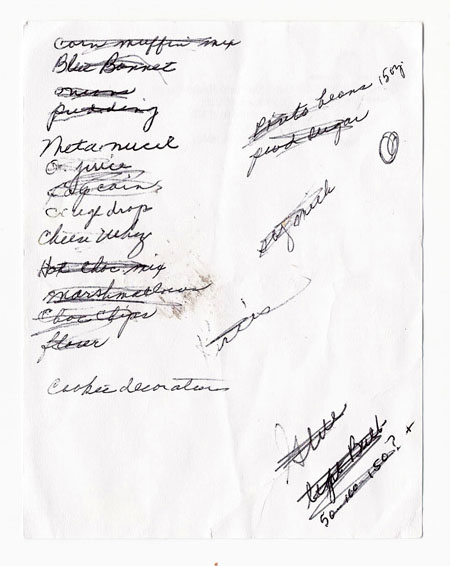 Corn muffin mix
Blue Bonnet
pudding
Metamucil
O. juice
cough drop
Cheese Whiz
Hot Choc. mix
marshmallows
Choc Chips
flour
Cookie decorations
Pinto beans 15oz
powd sugar
milk
Glue
light Bulb
50-100-150? +